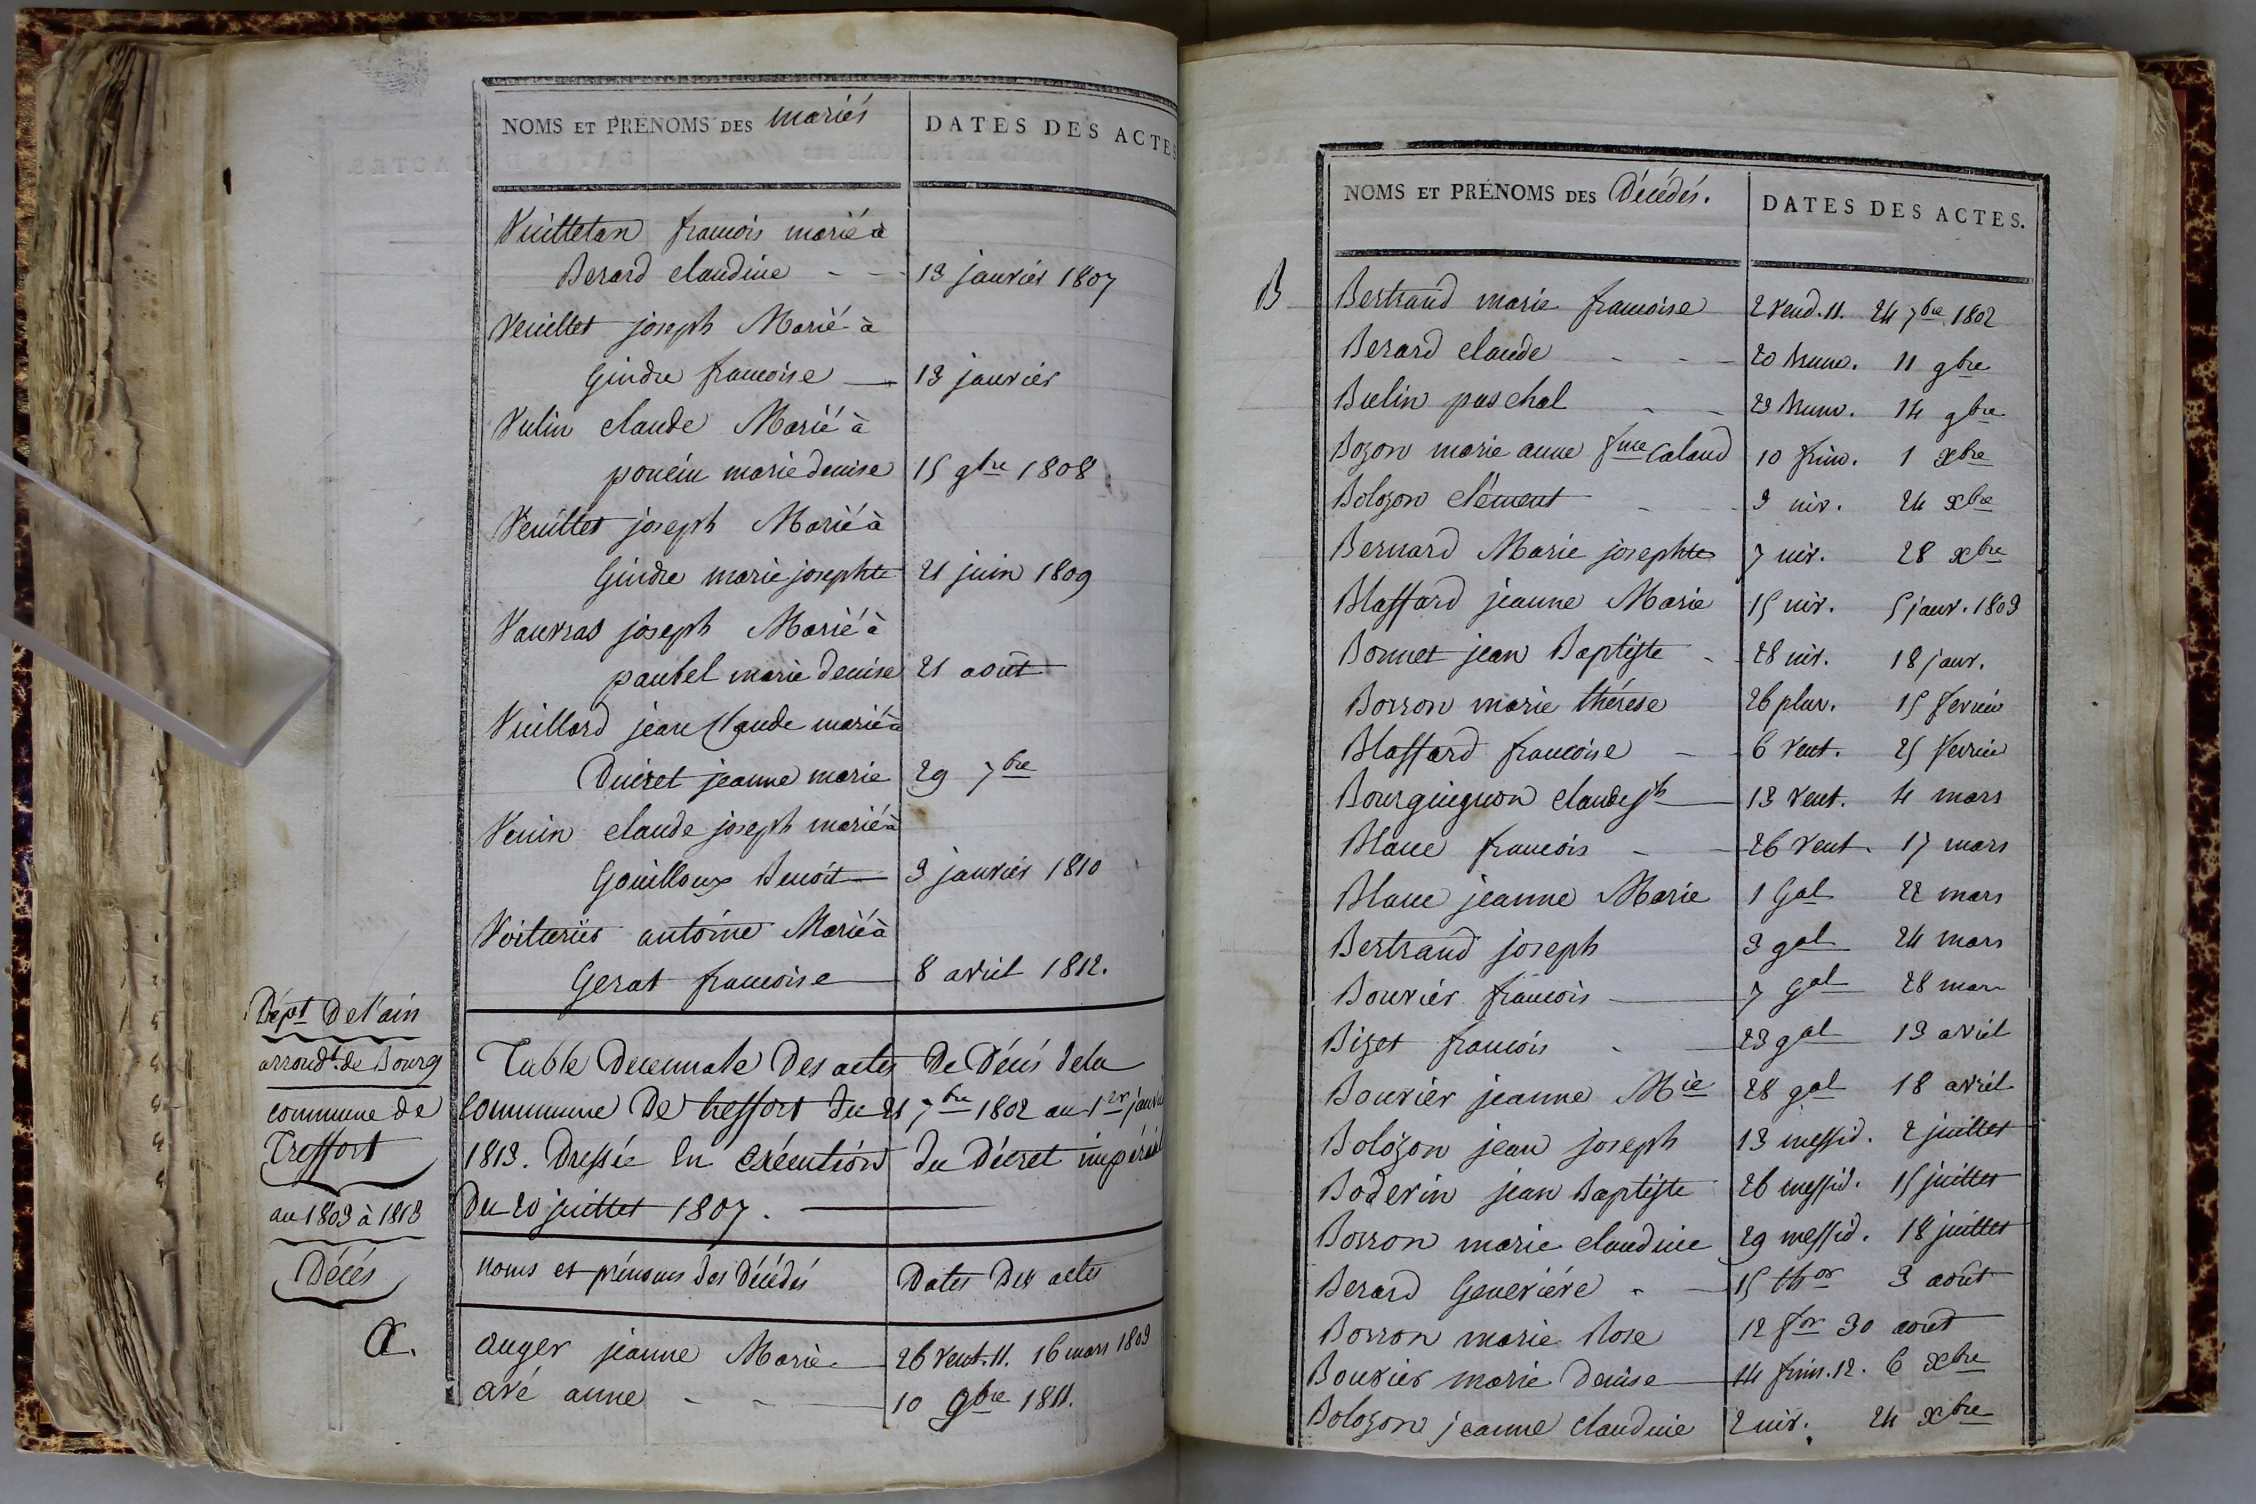 NOMS ET PRÉNOMS DES mariés DATES DES ACTES
Vuilletan francois marié à
Berard claudine - - 13 janvier 1807
Veuillet joseph Marié à
Gindre francoise 13 janvier
Vulin claude Marié à
poncin marie denise 15 9bre 1808
Veuillet joseph Marié à
Gindre marie josephte 21 juin 1809
Vauvras joseph Marié à
pautel marie denise 21 août
Vuillard jean Claude marié à
Duiret jeanne marie 29 7bre
Venin claude joseph marié à
Gouilloux Benoit 3 janvier 1810
Voituriér antoine Marié à
Gerat francoise 8 avril 1812.
Dépt De l'ain
arrondt. de Bourg
commune de
Treffort
an 1803 à 1813
Décés
Table Decennale Des actes De Décés dela
commune De treffort du 21 7bre 1802 au 1er janvier
1813. Dressée En exécution du Décret impérial
Du 20 juillet 1807.
noms et prénoms des Décédés Dates Des actes
A.
auger jeanne Marie 26 vent. 11. 16 mars 1803
avé anne - - 10 9bre 1811.
NOMS ET PRÉNOMS DES Décédés. DATES DES ACTES.
B Bertrand marie francoise 2 vend. 11. 24 7bre 1802
Berard claude - - 20 brum. 11 9bre
Bulin paschal - - 23 brum. 14 9bre
Bozon marie anne fme Caland 10 frim. 1 Xbre
Bolozon clément - - 3 niv. 24 Xbre
Bernard Marie josephte 7 niv. 28 Xbre
Blaffard jeanne Marie 15 niv. 5 janv. 1803
Bonnet jean Baptiste - 28 niv. 18 janv.
Borron marie thérese 26 pluv. 15 fevrier
Blaffard francoise - 6 vent. 25 fevrier
Bourguignon claude jh 13 vent. 4 mars
Blanc francois - 26 vent. 17 mars
Blanc jeanne Marie 1 Gal 22 mars
Bertrand joseph 3 gal 24 mars
Bouviér francois 7 gal 28 mars
Bizet francois - 23 gal 13 avril
Bouvier jeanne Mie 28 gal 18 avril
Bolozon jean joseph 13 messid. 2 juillet
Boderin jean Baptiste 26 messid. 15 juillet
Borron marie claudine 29 messid. 18 juillet
Berard Geneviéve - 15 thor 3 août
Borron marie Rose 12 for 30 août
Bouvier marie denise 14 frim. 12. 6 Xbre
Bolozon jeanne claudine 2 niv. 24 Xbre